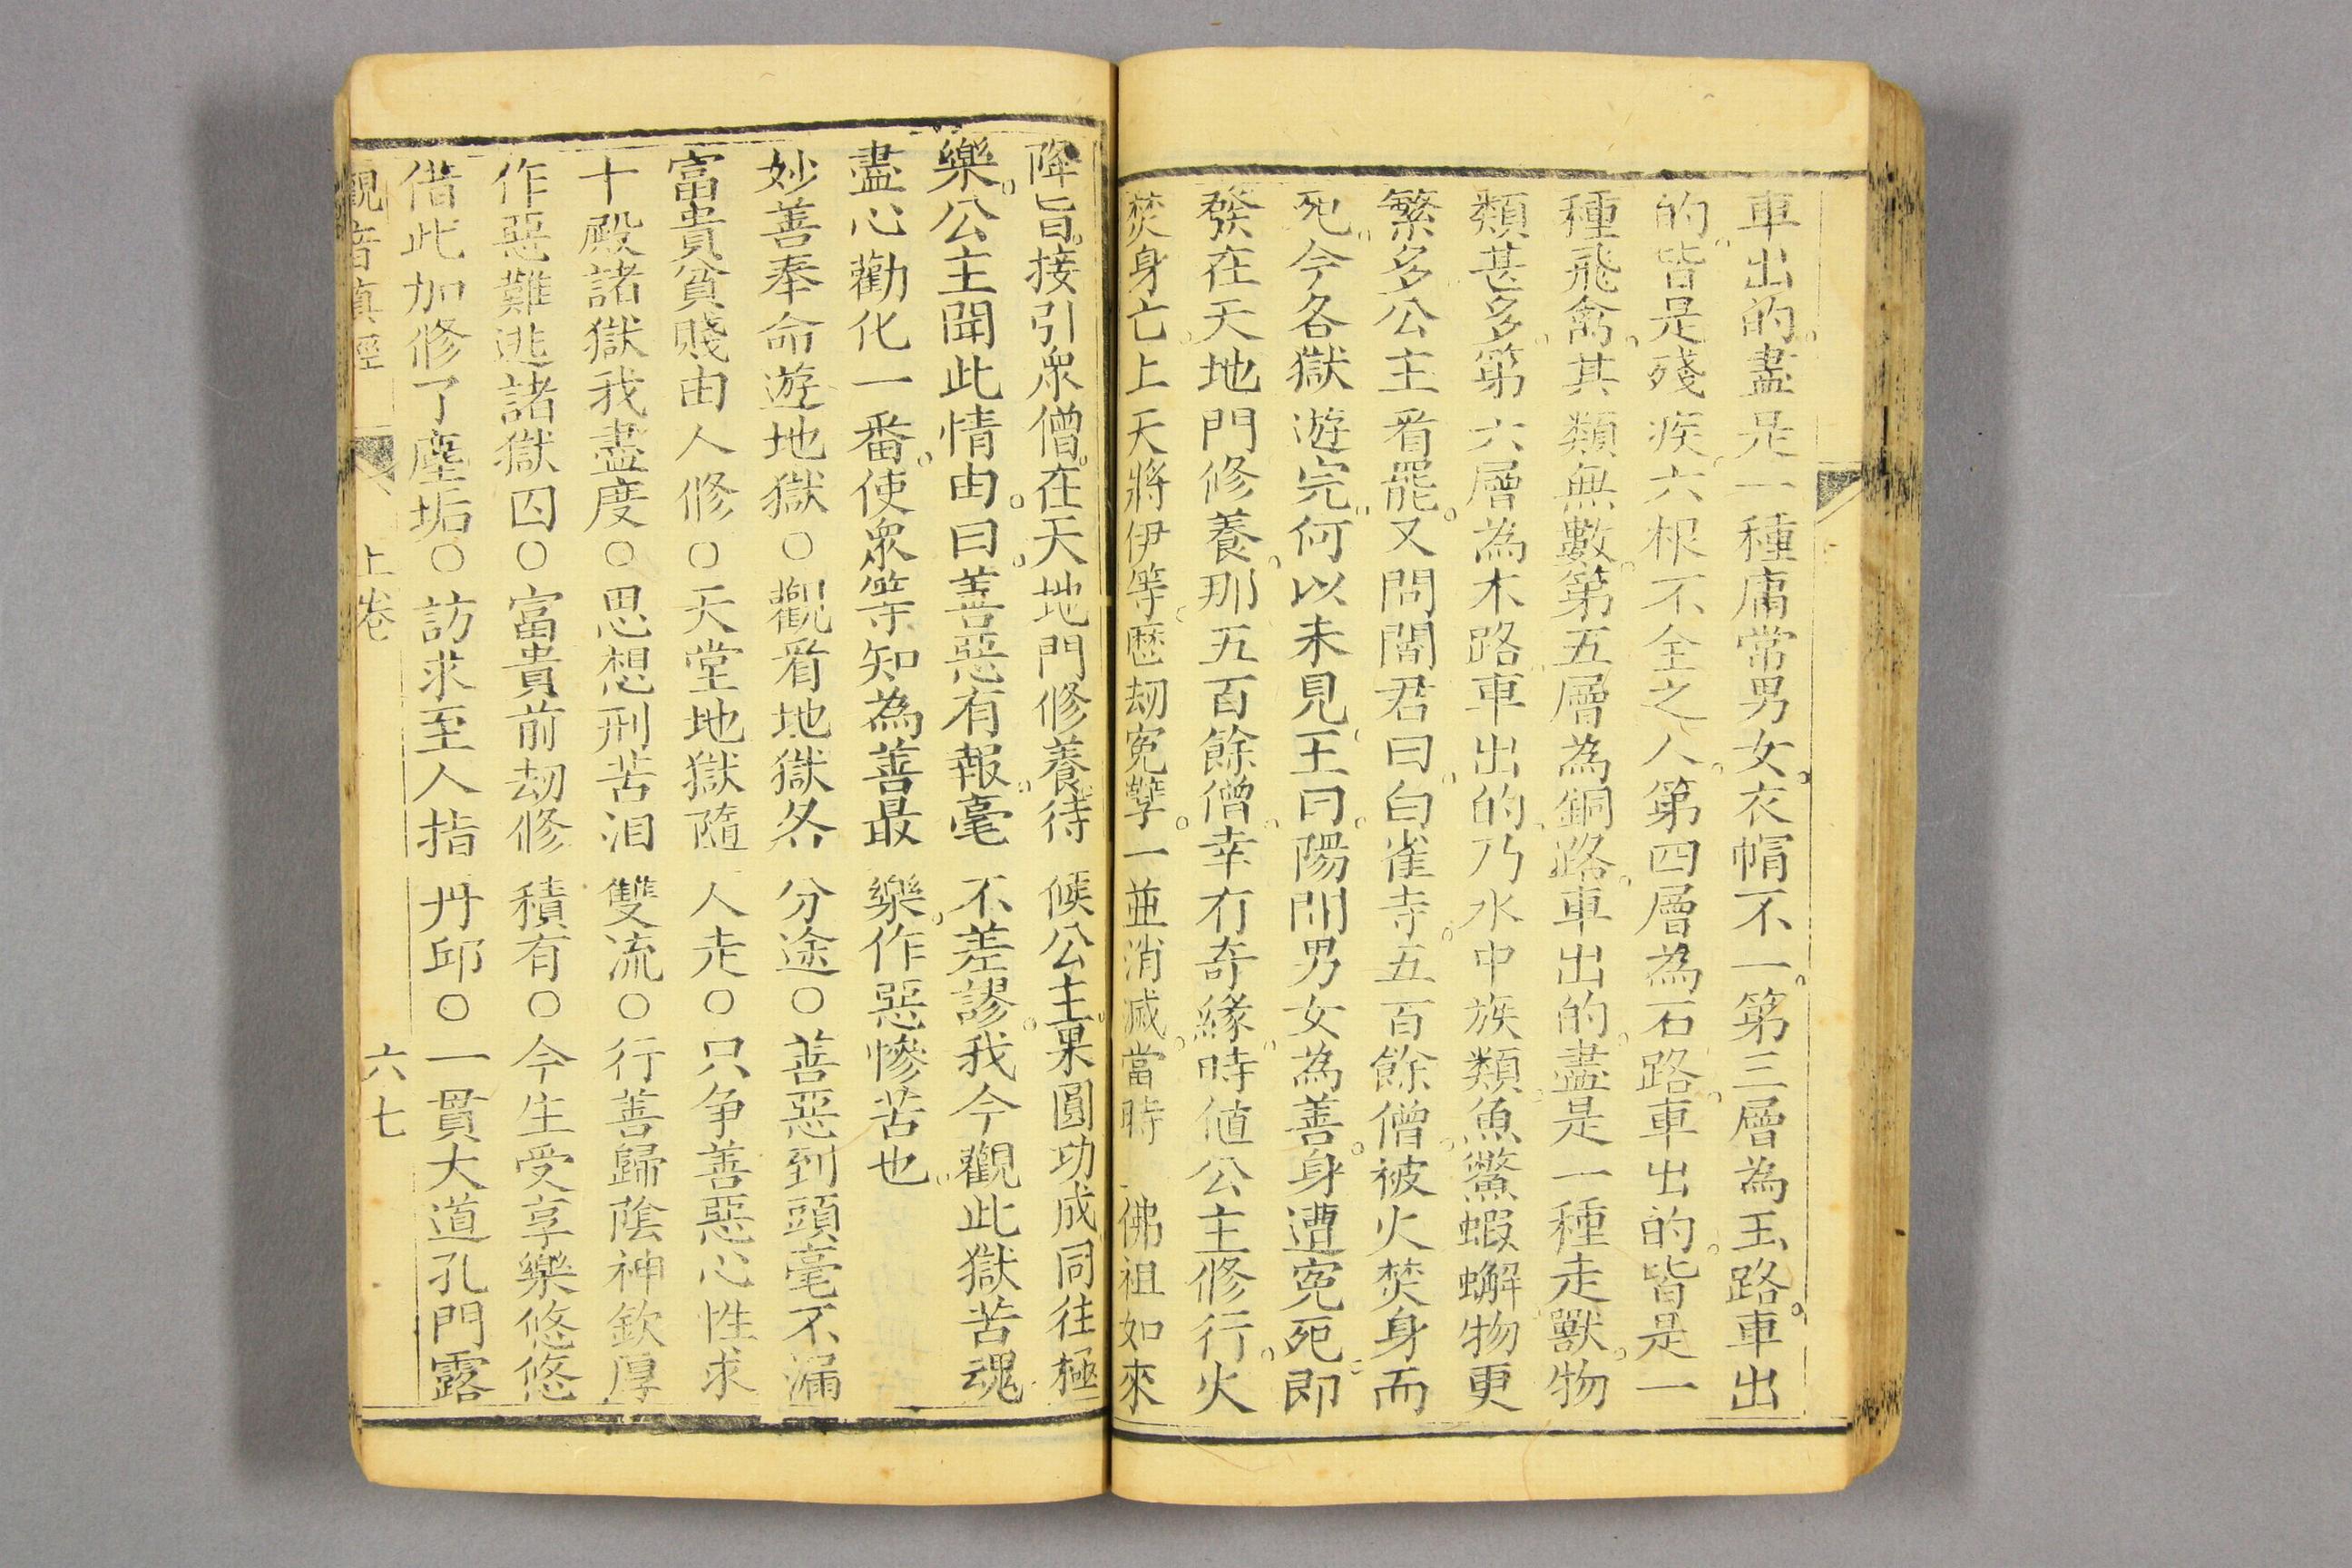 車出的。盡是一種庸常男女。衣帽不一。第三層為玉路。車出
的。皆是殘疾。六根不全之人。第四層為石路。車出的。皆是一
種飛禽。其類無數。第五層為銅路。車出的。盡是一種走獸。物
類甚多。第六層為木路。車出的。乃水中族類魚鱉蝦蠏物更
繁多。公主看罷。又問閻君曰。白雀寺。五百餘僧。被火焚身而
死。今各獄遊完。何以未見。王曰。陽間男女為善。身遭寃死。即
發在天地門修養。那五百餘僧。幸有奇緣。時值公主修行。火
焚身亡。上天將伊等。歷刼寃孽。一並消滅。當時 佛祖如來
降旨。接引眾僧。在天地門修養。待候公主。果圓功成同往極
樂。公主聞此情由。曰。善惡有報。毫不差謬。我今觀此獄苦魂
盡心勸化一番。使眾等知為善最樂。作惡慘苦也。
妙善奉命遊地獄○觀看地獄各分途○善惡到頭毫不漏
富貴貧賤由人修○天堂地獄隨人走○只争善惡心性求
十殿諸獄我盡度○思想刑苦泪雙流○行善歸陰神欽厚
作惡難逃諸獄囚○富貴前刼修積有○今生受享樂悠悠
借此加修了塵垢○訪求至人指丹邱○一貫大道孔門露
觀音真經 上卷 六七